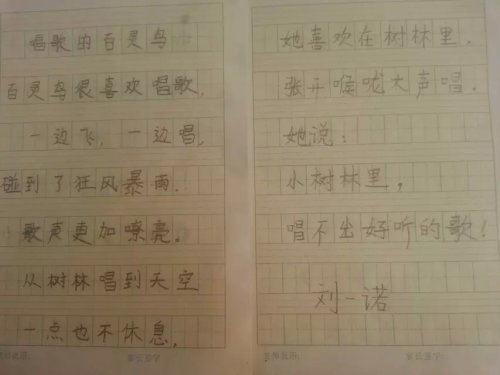 唱歌的百灵鸟
百灵鸟很喜欢唱歌,
一边飞,一边唱,
碰到了狂风暴雨.
歌真更加嘹亮。
从树林唱到天空
一点也不休息,
家长签字
她喜欢在树林里.
张开喉咙大声唱.
她说:
小树林里,
唱不出好听的歌!
刘一诺
家长签字